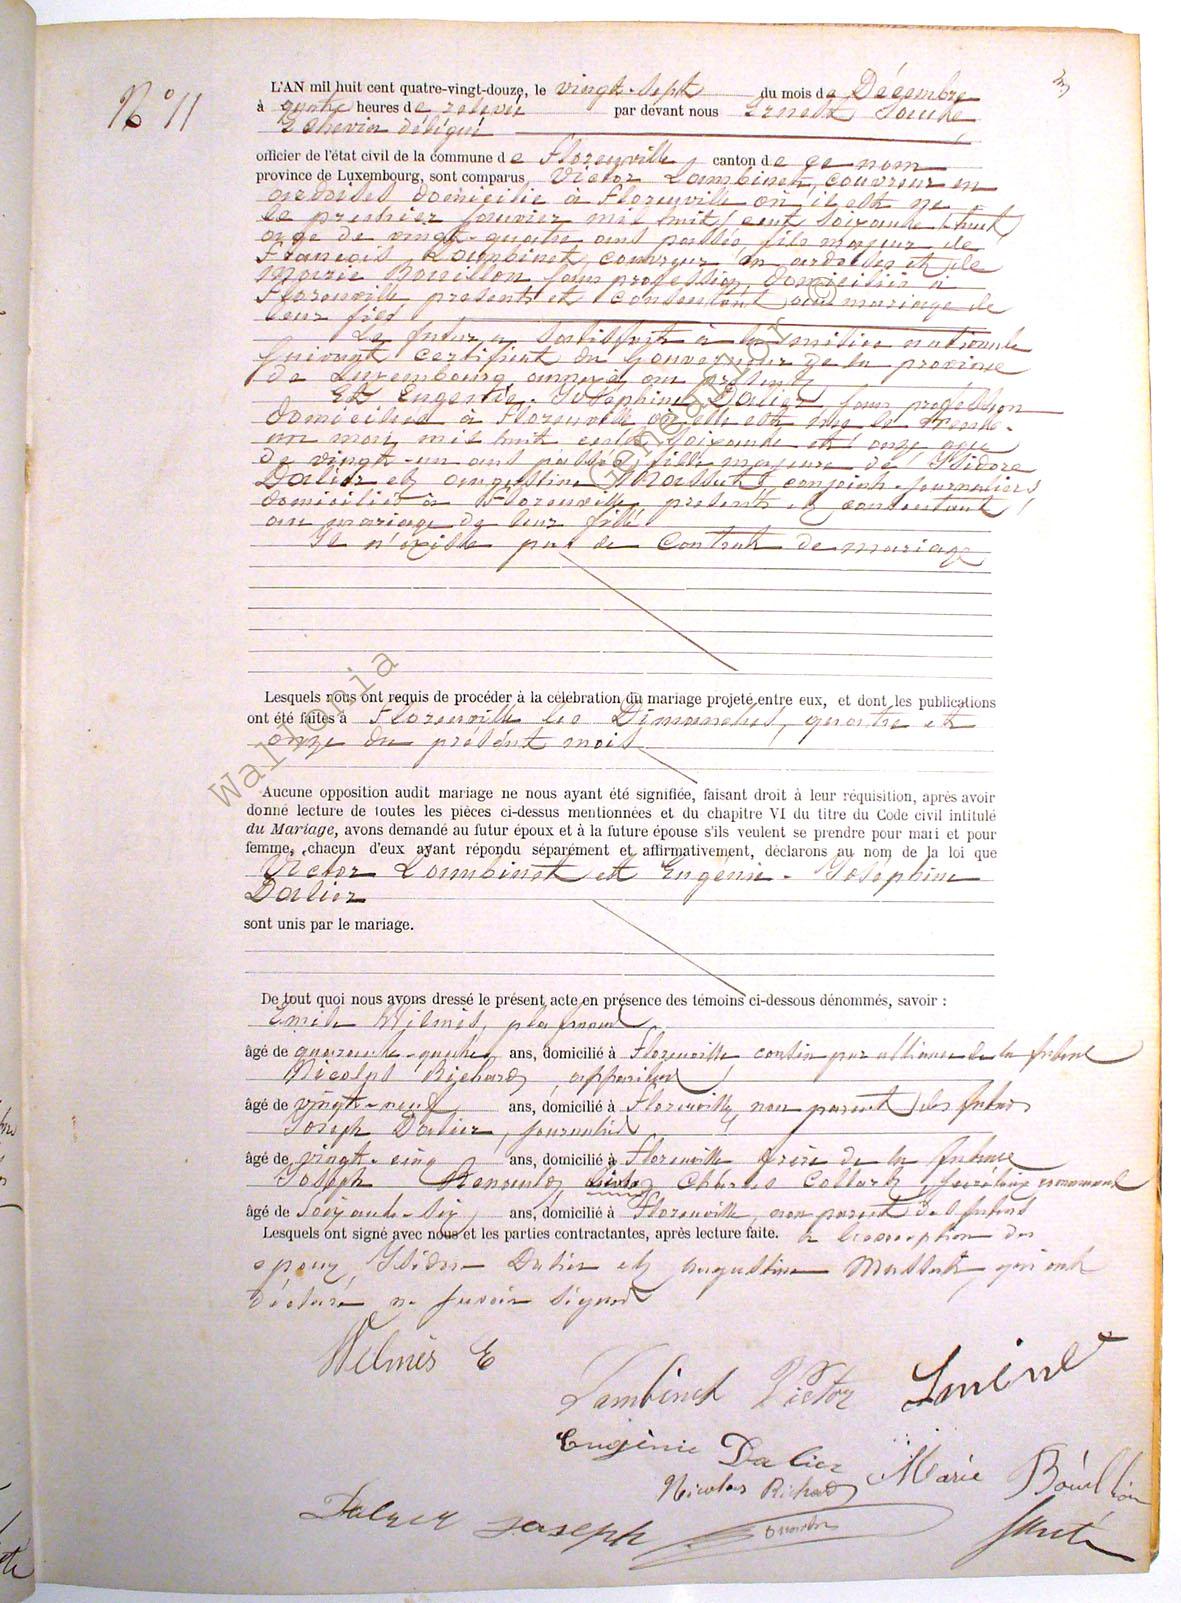 N° 11
L'AN mil huit cent quatre-vingt-douze, le vingt-sept du mois de Décembre
à quatre heures de relevée par devant nous Ernest
Echevin délégué
officier de l'état civil de la commune de Florenville canton de ce nom
province de Luxembourg, sont comparus Victor Lambinet, couvreur en
ardoises domicilié à Florenville où il est né
le premier janvier mil huit cent soixante huit
âgé de vingt-quatre ans passés, fils majeur de
François Lambinet, couvreur en ardoises et de
Marie Bouillon sans profession, domiciliés à
Florenville présents et consentant au mariage de
leur fils
Le futur a satisfait à la milice nationale
suivant certificat du Gouverneur de la province
de Luxembourg annexé au présent
Et Eugénie-Joséphine Dalier sans profession
domiciliée à Florenville où elle est née le trente-
un mai mil huit cent soixante et onze âgée
de vingt-un ans passés, fille majeure de Isidore
Dalier et Augustine Massut, conjoints journaliers
domiciliés à Florenville, présents et consentant
au mariage de leur fille
Il n'existe pas de contrat de mariage
Lesquels nous ont requis de procéder à la célébration du mariage projeté entre eux, et dont les publications
ont été faites à Florenville les Dimanches, quatre et
onze du présent mois
Aucune opposition audit mariage ne nous ayant été signifiée, faisant droit à leur réquisition, après avoir
donné lecture de toutes les pièces ci-dessus mentionnées et du chapitre VI du titre du Code civil intitulé
du Mariage, avons demandé au futur époux et à la future épouse s'ils veulent se prendre pour mari et pour
femme, chacun d'eux ayant répondu séparément et affirmativement, déclarons au nom de la loi que
Victor Lambinet et Eugénie-Joséphine
Dalier
sont unis par le mariage.
De tout quoi nous avons dressé le présent acte en présence des témoins ci-dessous dénommés, savoir :
Emile Wilmès, plafonneur
âgé de quarante-quatre ans, domicilié à Florenville cousin par alliance de la future
Nicolas Richard, appariteur
âgé de vingt-neuf ans, domicilié à Florenville, non parent des futurs
Joseph Dalier, journalier
âgé de vingt-cinq ans, domicilié à Florenville frère de la future
Joseph Charles Collard, secrétaire communal
âgé de soixante-six ans, domicilié à Florenville, non parent des futurs
Lesquels ont signé avec nous et les parties contractantes, après lecture faite. à l'exception des
époux Isidore Dalier et Augustine Massut, qui ont
déclaré ne savoir signer
Wilmès E
Lambinet Victor
Eugénie Dalier
Marie Bouillon
Nicolas Richard
Dalier Joseph
Wallonia